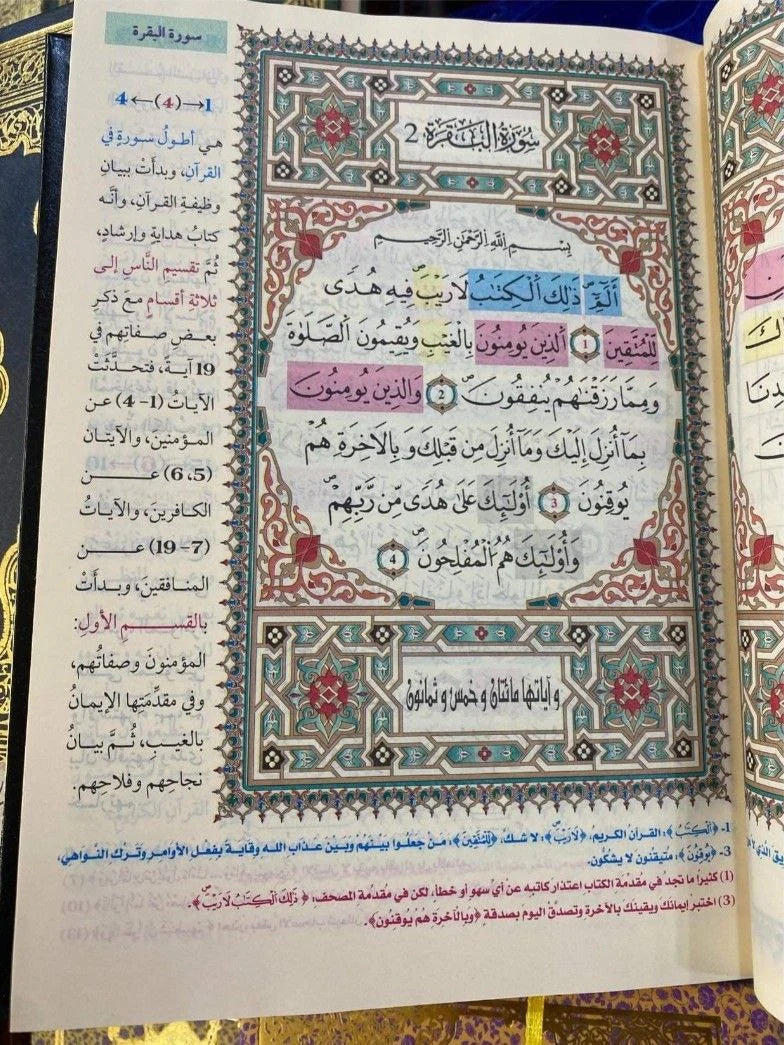 سورة البقرة
1→(4)←4
هي أطولُ سورةٍ في
القرآنِ، وبدأتْ ببيانِ
وظيفةِ القرآنِ، وأنَّه
كتابُ هدايةٍ وإرشادٍ،
ثُمَّ تقسيمِ النَّاسِ إلى
ثلاثةِ أقسامٍ مع ذكرِ
بعضِ صفاتِهم في
19 آيةً، فتحدَّثَتْ
الآياتُ (1- 4) عن
المؤمنين، والآيتان
(5، 6) عن
الكافرين، والآياتُ
(7- 19) عن
المنافقين، وبدأتْ
بالقسمِ الأولِ:
المؤمنونَ وصفاتُهم،
وفي مقدِّمتِها الإيمانُ
بالغيبِ، ثُمَّ بيانُ
نجاحِهم وفلاحِهم.
سُورَةُ البَقَرَةِ 2
بِسْمِ اللَّهِ الرَّحْمَٰنِ الرَّحِيمِ
أَلَٓمِّٓ ذَٰلِكَ ٱلْكِتَٰبُ لَا رَيْبَ فِيهِ هُدًى
لِّلْمُتَّقِينَ 1 ٱلذِينَ يُومِنُونَ بِالْغَيْبِ وَيُقِيمُونَ ٱلصَّلَوٰةَ
وَمِمَّا رَزَقْنَٰهُمْ يُنفِقُونَ 2 وَالذِينَ يُومِنُونَ
بِمَا أُنزِلَ إِلَيْكَ وَمَا أُنزِلَ مِن قَبْلِكَ وَبِالَاخِرَةِ هُمْ
يُوقِنُونَ 3 أُوْلَٰٓئِكَ عَلَىٰ هُدًى مِّن رَّبِّهِمْ
وَأُوْلَٰٓئِكَ هُمُ ٱلْمُفْلِحُونَ 4
و آياتها مائتان و خمس و ثمانون
1- ﴿ٱلْكِتَٰبُ﴾: القرآن الكريم، ﴿لَا رَيْبَ﴾: لا شك، ﴿لِّلْمُتَّقِينَ﴾: مَنْ جَعَلُوا بَيْنَهُمْ وَبَيْنَ عَذَابِ الله وِقَايةً بِفِعْلِ الأوَامِرِ وتَرْكِ النَّوَاهِي،
3- ﴿يُوقِنُونَ﴾: مُتَيقِّنونَ لا يَشُكُّونَ.
(1) كثيرًا ما تجد في مقدمة الكتاب اعتذار كاتبه عن أي سهو أو خطأ، لكن في مقدمة المصحف: ﴿ذَٰلِكَ ٱلْكِتَٰبُ لَا رَيْبَ﴾.
(3) اختبر إيمانك ويقينك بالآخرة وتصدق اليوم بصدقة ﴿وَبِالَاخِرَةِ هُمْ يُوقِنُونَ﴾.